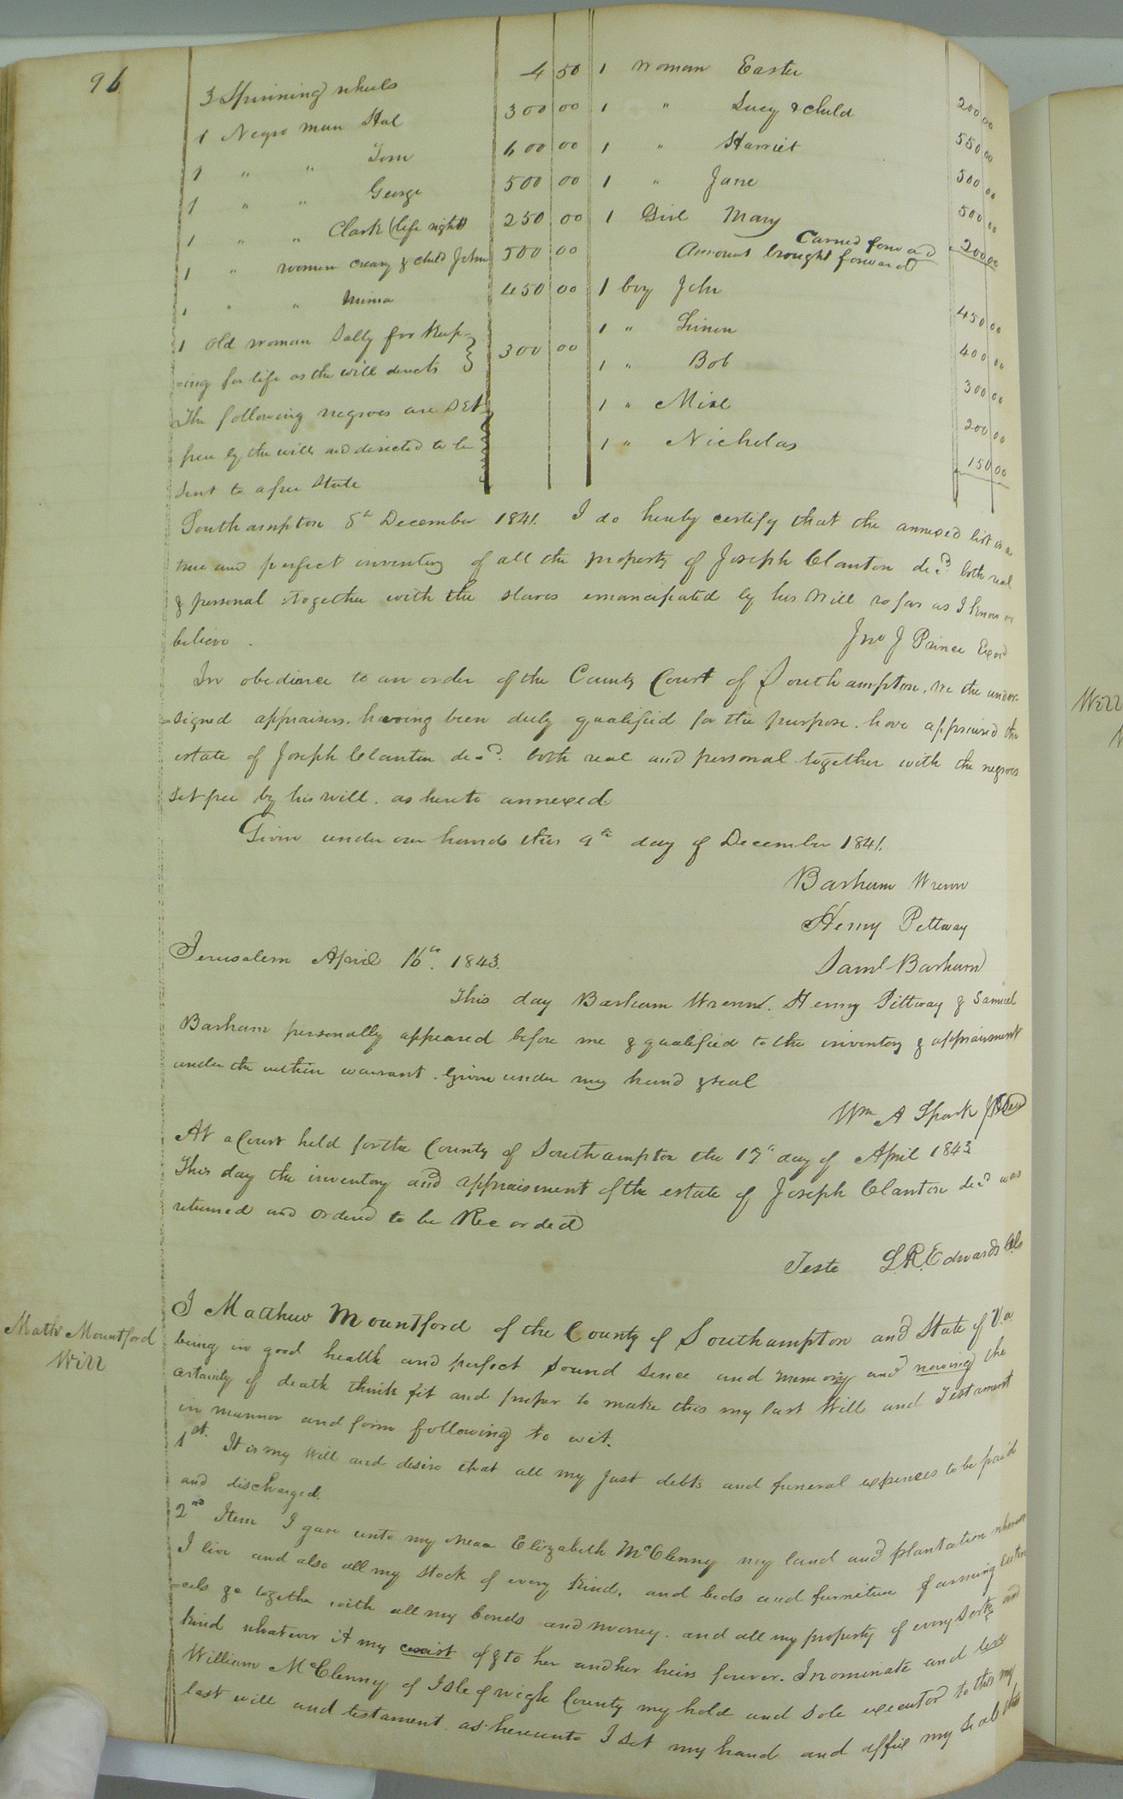 96
3 Spinning wheels 4 50
1 Negro man Hal 300 00
1 " " Tom 600 00
1 " " George 500 00
1 " " Clark (life right) 250 00
1 " women Creasy & child John 500 00
1 " " Mima 450 00
1 Old woman Sally for Keep-
-ing for life as the will directs 300 00
The following negroes are set
free by the will and directed to be
sent to a free State
1 woman Easter 200 00
1 " Lucy & child 550 00
1 " Harriet 500 00
1 " Jane 500 00
1 Girl Mary 200 00
Carried forward
Amount brought forward
1 boy John 450 00
1 " Simon 400 00
1 " Bob 300 00
1 " Mial 200 00
1 " Nicholas 150 00
Southampton 8th December 1841. I do hereby certify that the annexed list is a
true and perfect inventory of all the property of Joseph Clanton decd both real
& personal together with the slaves emancipated by his Will so far as I know or
believe. Jno J Prince Exor
In obedience to an order of the County Court of Southampton, we the under-
-signed appraisers having been duly qualified for the purpose have appraised the
estate of Joseph Clanton decd. both real and personal together with the negroes
set free by his will. as hereto annexed
Given under our hands this 9th day of December 1841.
Barham Wrenn
Henry Pettway
Saml Barham
Jerusalem April 16th. 1843.
This day Barham Wrenn, Henry Pittway & Samuel
Barham personally appeared before me & qualified to the inventory & appraisment
under the within warrant. Given under my hand & seal
Wm A Spark
At a Court held for the County of Southampton the 17th day of April 1843
This day the inventory and appraisement of the estate of Joseph Clanton decd was
returned and ordered to be Recorded
Teste L.R. Edwards Clk
Mathw Mountford
Will
I Matthew Mountford of the County of Southampton and State of Va
being in good health and perfect sound sence and memory and nowing the
certainty of death think fit and proper to make this my last Will and Testament
in manner and form following to wit.
1st. It is my Will and desire that all my Just debts and funeral expences to be paid
and discharged.
2nd Item I gave unto my Elizabeth McClenny my land and plantation whereon
I live and also all my stock of every kind, and beds and furniture farming
together with all my bonds and money. and all my property of every sort and
kind whatever it my cosist of & to her and her heirs forever. I nominate and
William McClenny of Isle of wight County my hold and sole executor to this my
last will and testament. as hereunto I set my hand and affix my seal this
Will